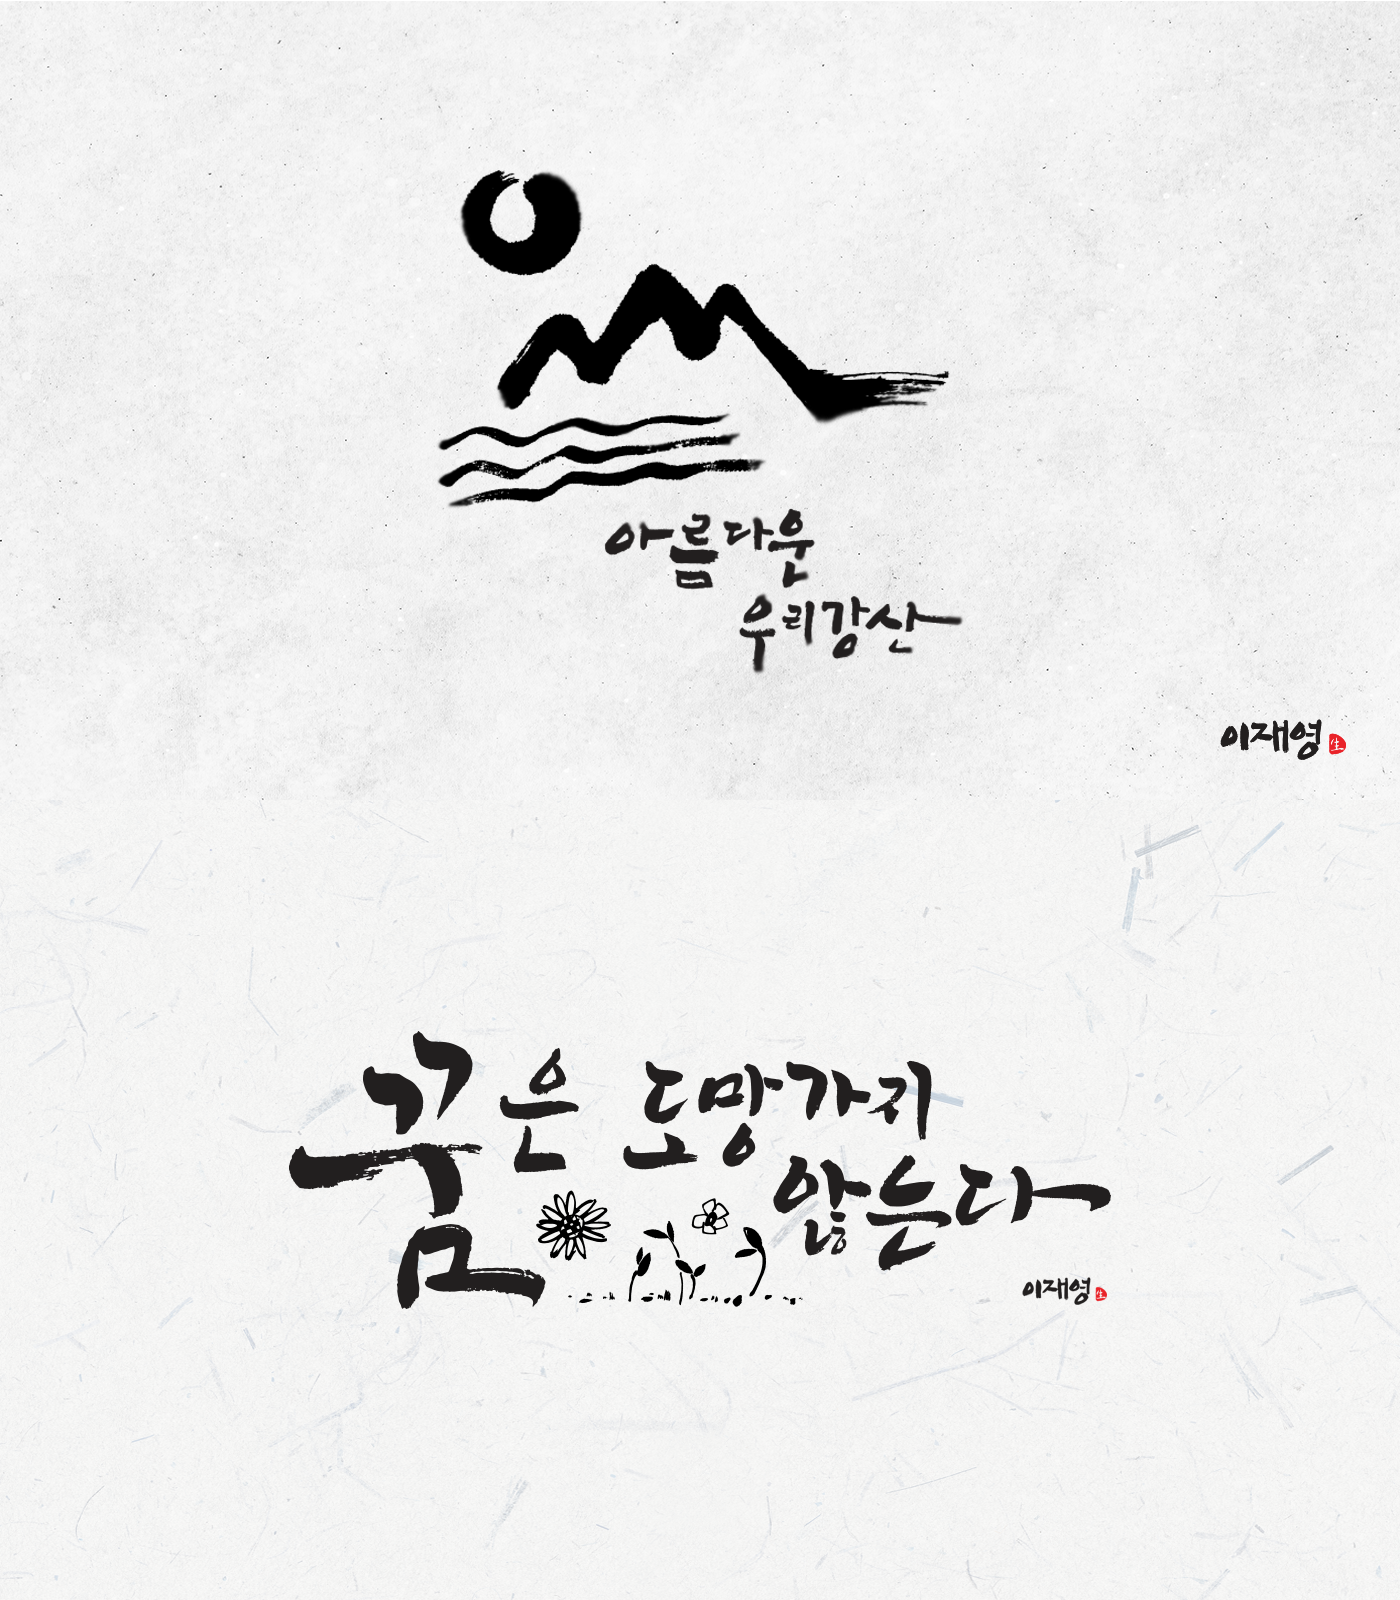 아름다운
우리강산
이재영 生
꿈은 도망가지
않는다
이재영 生